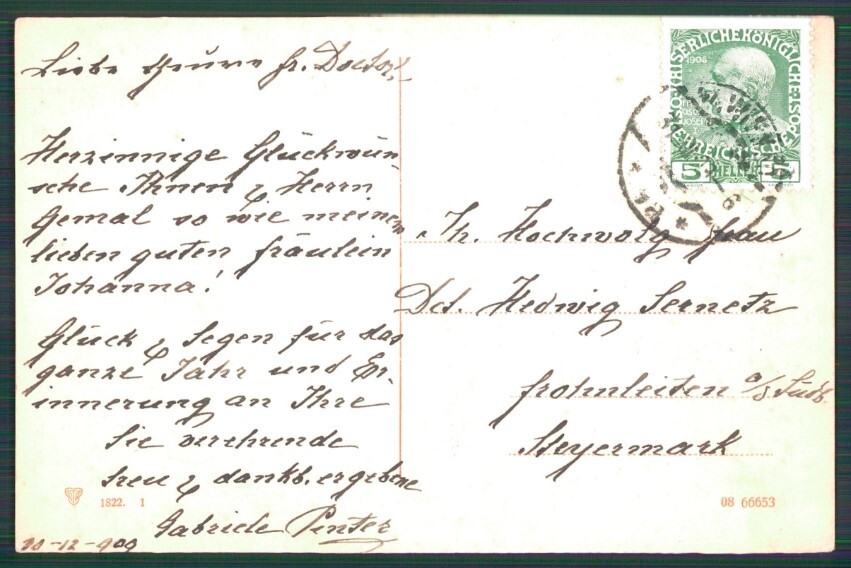 Liebe theure fr. Doctor!
Herzinnige Glückwün-
sche Ihnen & Herrn
Gemal so wie meinem
lieben guten fräulein
Johanna!
Glück & Segen für das
ganze Jahr und Er-
innerung an Ihre
Sie verehrende
treu & dankb. ergebene
Gabriele Pinter
30-12-909
KAISERLICHEKÖNIGLICHE
ÖSTERREICHISCHE POST
1908
5 HELLER 5
WIEN
Ih. Hochwolg frau
Dct. Hedwig Sernetz
frohnleiten a/s Südb.
Steyermark
1822. 1
08 66653